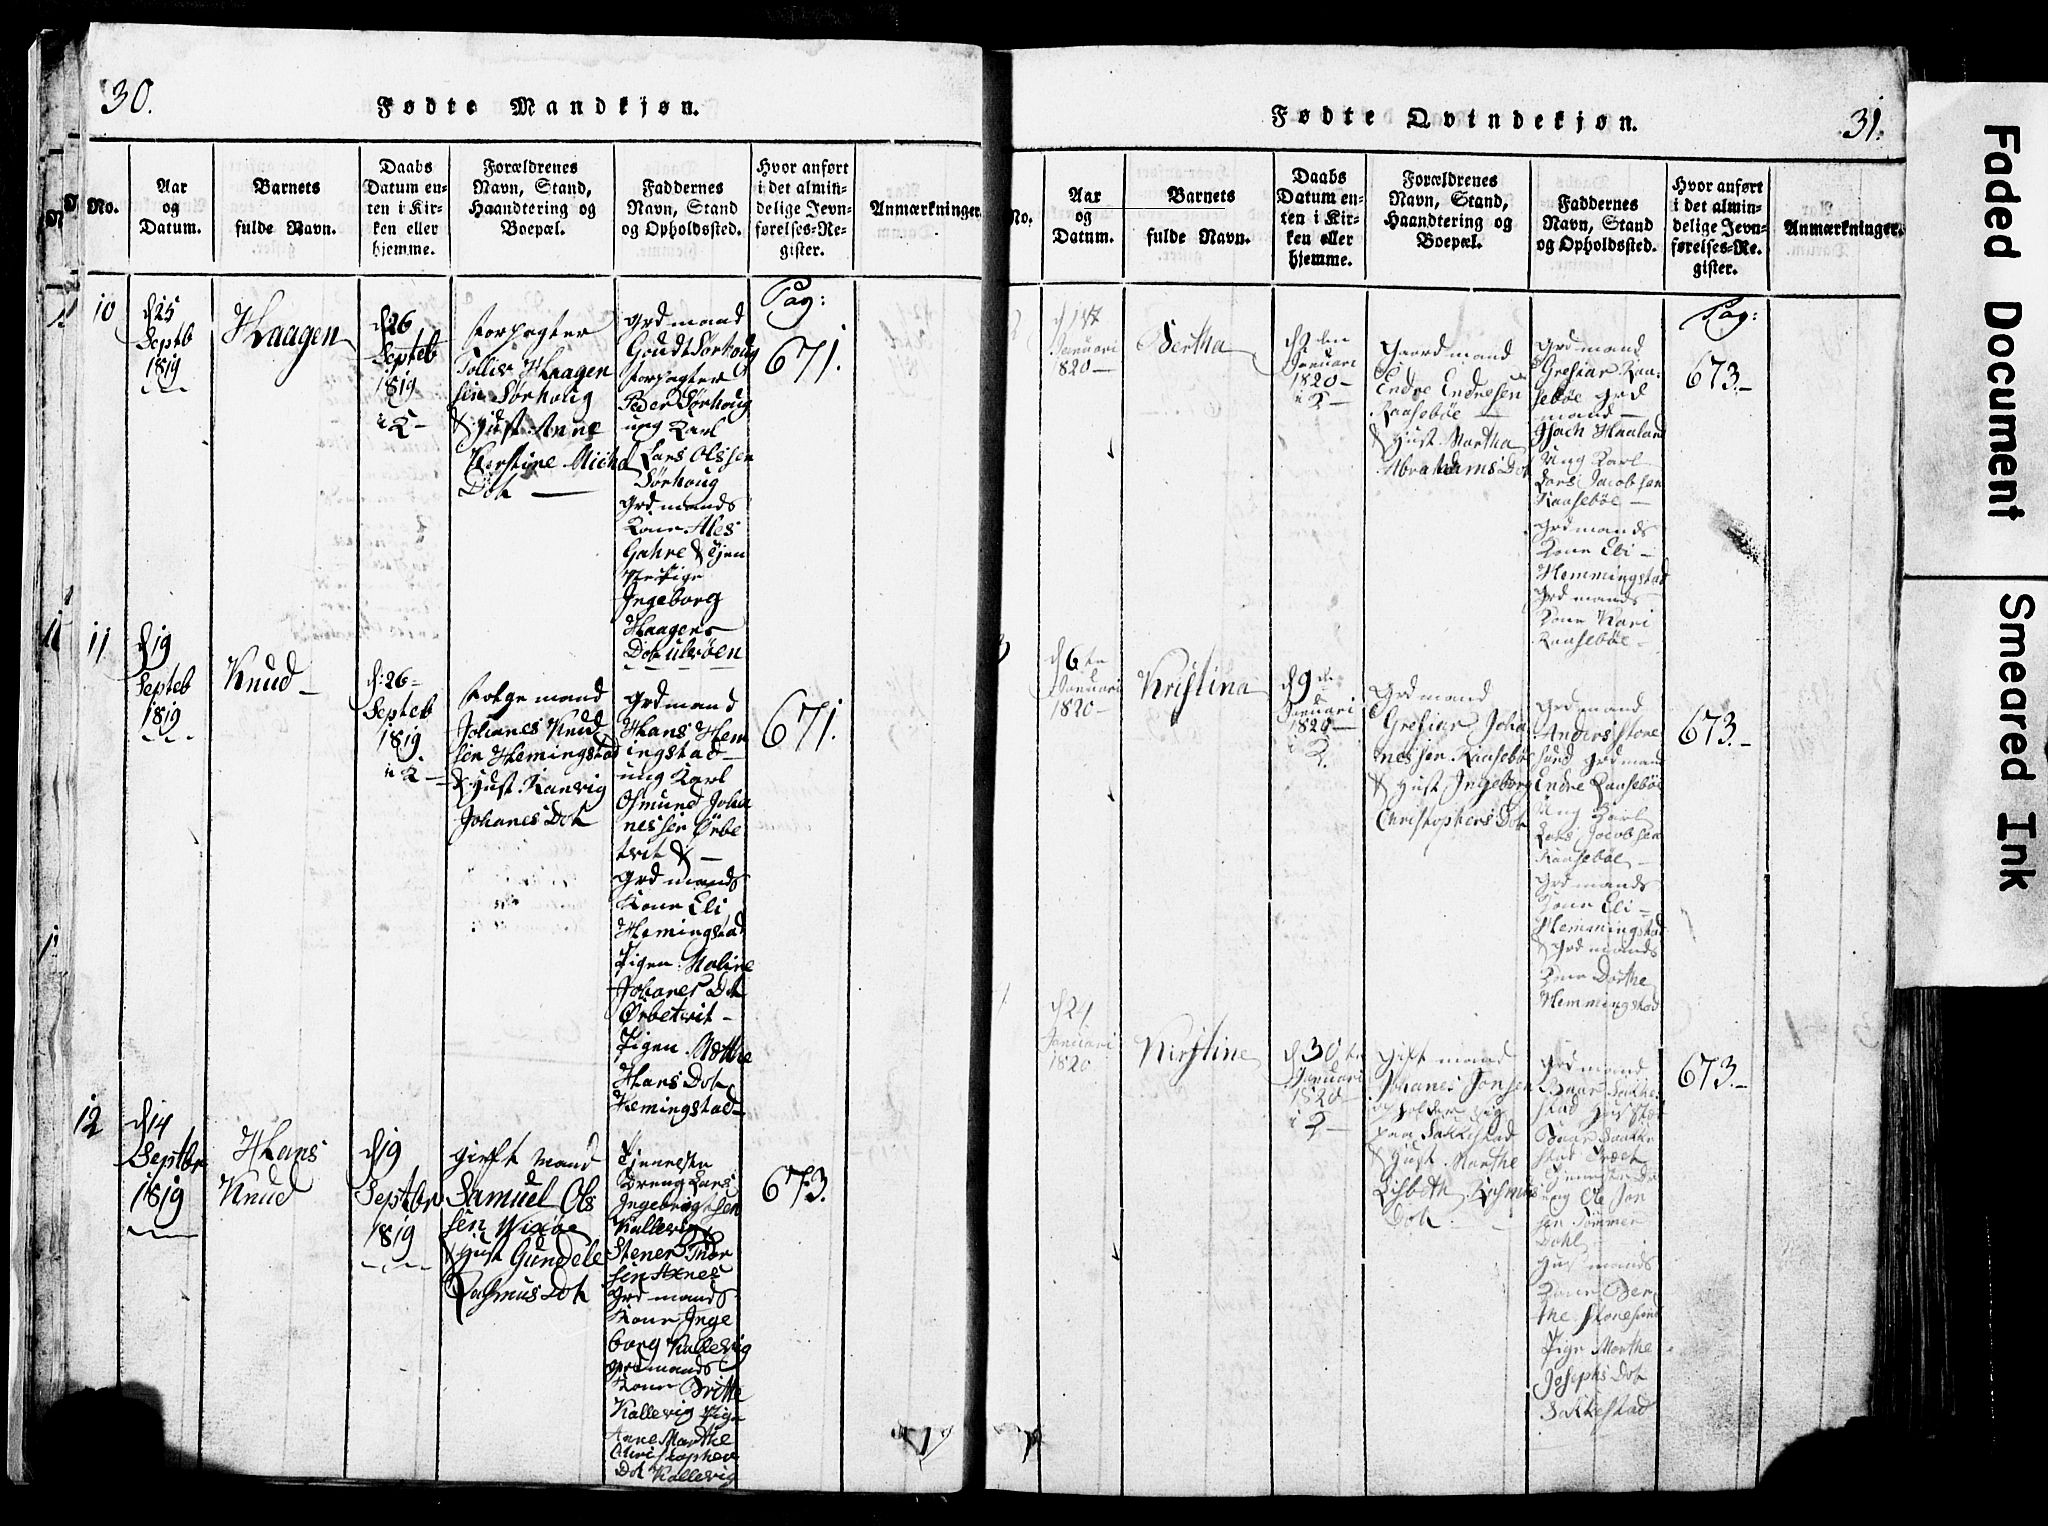 30.
Fødte Mandkjøn.
No.
Aar
og
Datum.
Barnets
fulde Navn.
Daabs
Datum en-
ten i Kir-
ken eller
hjemme.
Forældrenes
Navn, Stand,
Haandtering og
Boepæl.
Faddernes
Navn, Stand
og Opholdssted.
Hvor anført
i det almin-
delige Jevn-
førelses-Re-
gister.
Anmærkninger.
10
d 25
Septb
1819
Haagen
d: 26
Septeb
1819
i K
forpagter
Tollis Haagen
sen Sørhoug
& Hust. Anne
Kerstine Micha
Dot
Grdmand
Goudt Sørhoug
forpagter
Peder Sørhoug
ung Karl
Lars Olssen
Sørhoug
Grdmands
Kone Ales
Gahre & Tjen
Ingeborg
Haagens
Dot Ulvøen
Pag:
671.
11
d 19
Septeb
1819
Knud
d: 26
Septeb
1819
i K
Johanes Knud
sen Hemingstad
& Hust Ranvig
Johanes Dot
Grdmand
Hans Hem
ingstad
ung Karl
Osmund Joha
nessen Ørbe
tvit &
Grdmands
Kone Eli
Hemingstad
Pigen Maline
Johanes Dot
Ørbetvit
Pigen Mæthe
Hans Dot
Hemingstad
671.
12
d 14
Septbr
1819
Hans
Knud
d 19
Septbr
1819
gift Mand
Samuel Ols
sen Wixøe
& Hust Gundele
Rasmus Dot
Tjeneste
Dreng Lars
Ingebrigtsen
Kallevig
Stener Thor
sen Axnes
Grdmands
Kone Inge
borg Kallevig
Grdmands
Kone Britte
Kallevig Pige
Anne Marthe
Christopher
Dot Kallevig
673.
Fødte Qvindekjøn.
31.
No.
Aar
og
Datum.
Barnets
fulde Navn.
Daabs
Datum en-
ten i Kir-
ken eller
hjemme.
Forældrenes
Navn, Stand,
Haandtering og
Boepæl.
Faddernes
Navn, Stand
og Opholdssted.
Hvor anført
i det almin-
delige Jevn-
førelses-Re-
gister.
Anmærkninger.
Januari
1820
Bertha
Januari
1820
i K
Gaardmand
Endre Endresen
Raasebøe
& Hust Martha
Abrahams Dot
Grdmand
Gresiar Raa-
sebøe Grd
mand
Isach Haaland
Ung Karl
Lars Jacobsen
Raasebøe
Grdmands
Kone Eli
Hemmingstad
Grdmands
Kone Kari
Raasebøe
Pag:
673.
d 6te
Januari
1820
Kristina
d 9de
Januari
1820
i K.
Grdmand
Gresiar Joha
nessen Raasebøe
& Hust Ingeborg
Christophers Dot
Grdmand
Anders Store
sund Grdmand
Endre Raasebøe
Ung Karl
Lars Jacobsen
Raasebøe
Grdmands
Kone Eli
Hemmingstad
& Grdmands
Kone Dorthe
Hemmingstad
673.
d 24
Januari
1820
Kirstine
d 30te
Januari
1820
i K
Gift mand
Johanes Jonsen
opholder sig
paa Sakkestad
& Hust Marthe
Lisbeth Rasmus
Dot
Grdmand
Baar Sakke
stad
Baar Sakke
stad
ung Ole Jon
sen Tømmer
Dahl
Husmands
Kone Ber
the Storesund
Pige Marthe
Josephs Dot
Sakkestad
673.
Faded Document
Smeared Ink